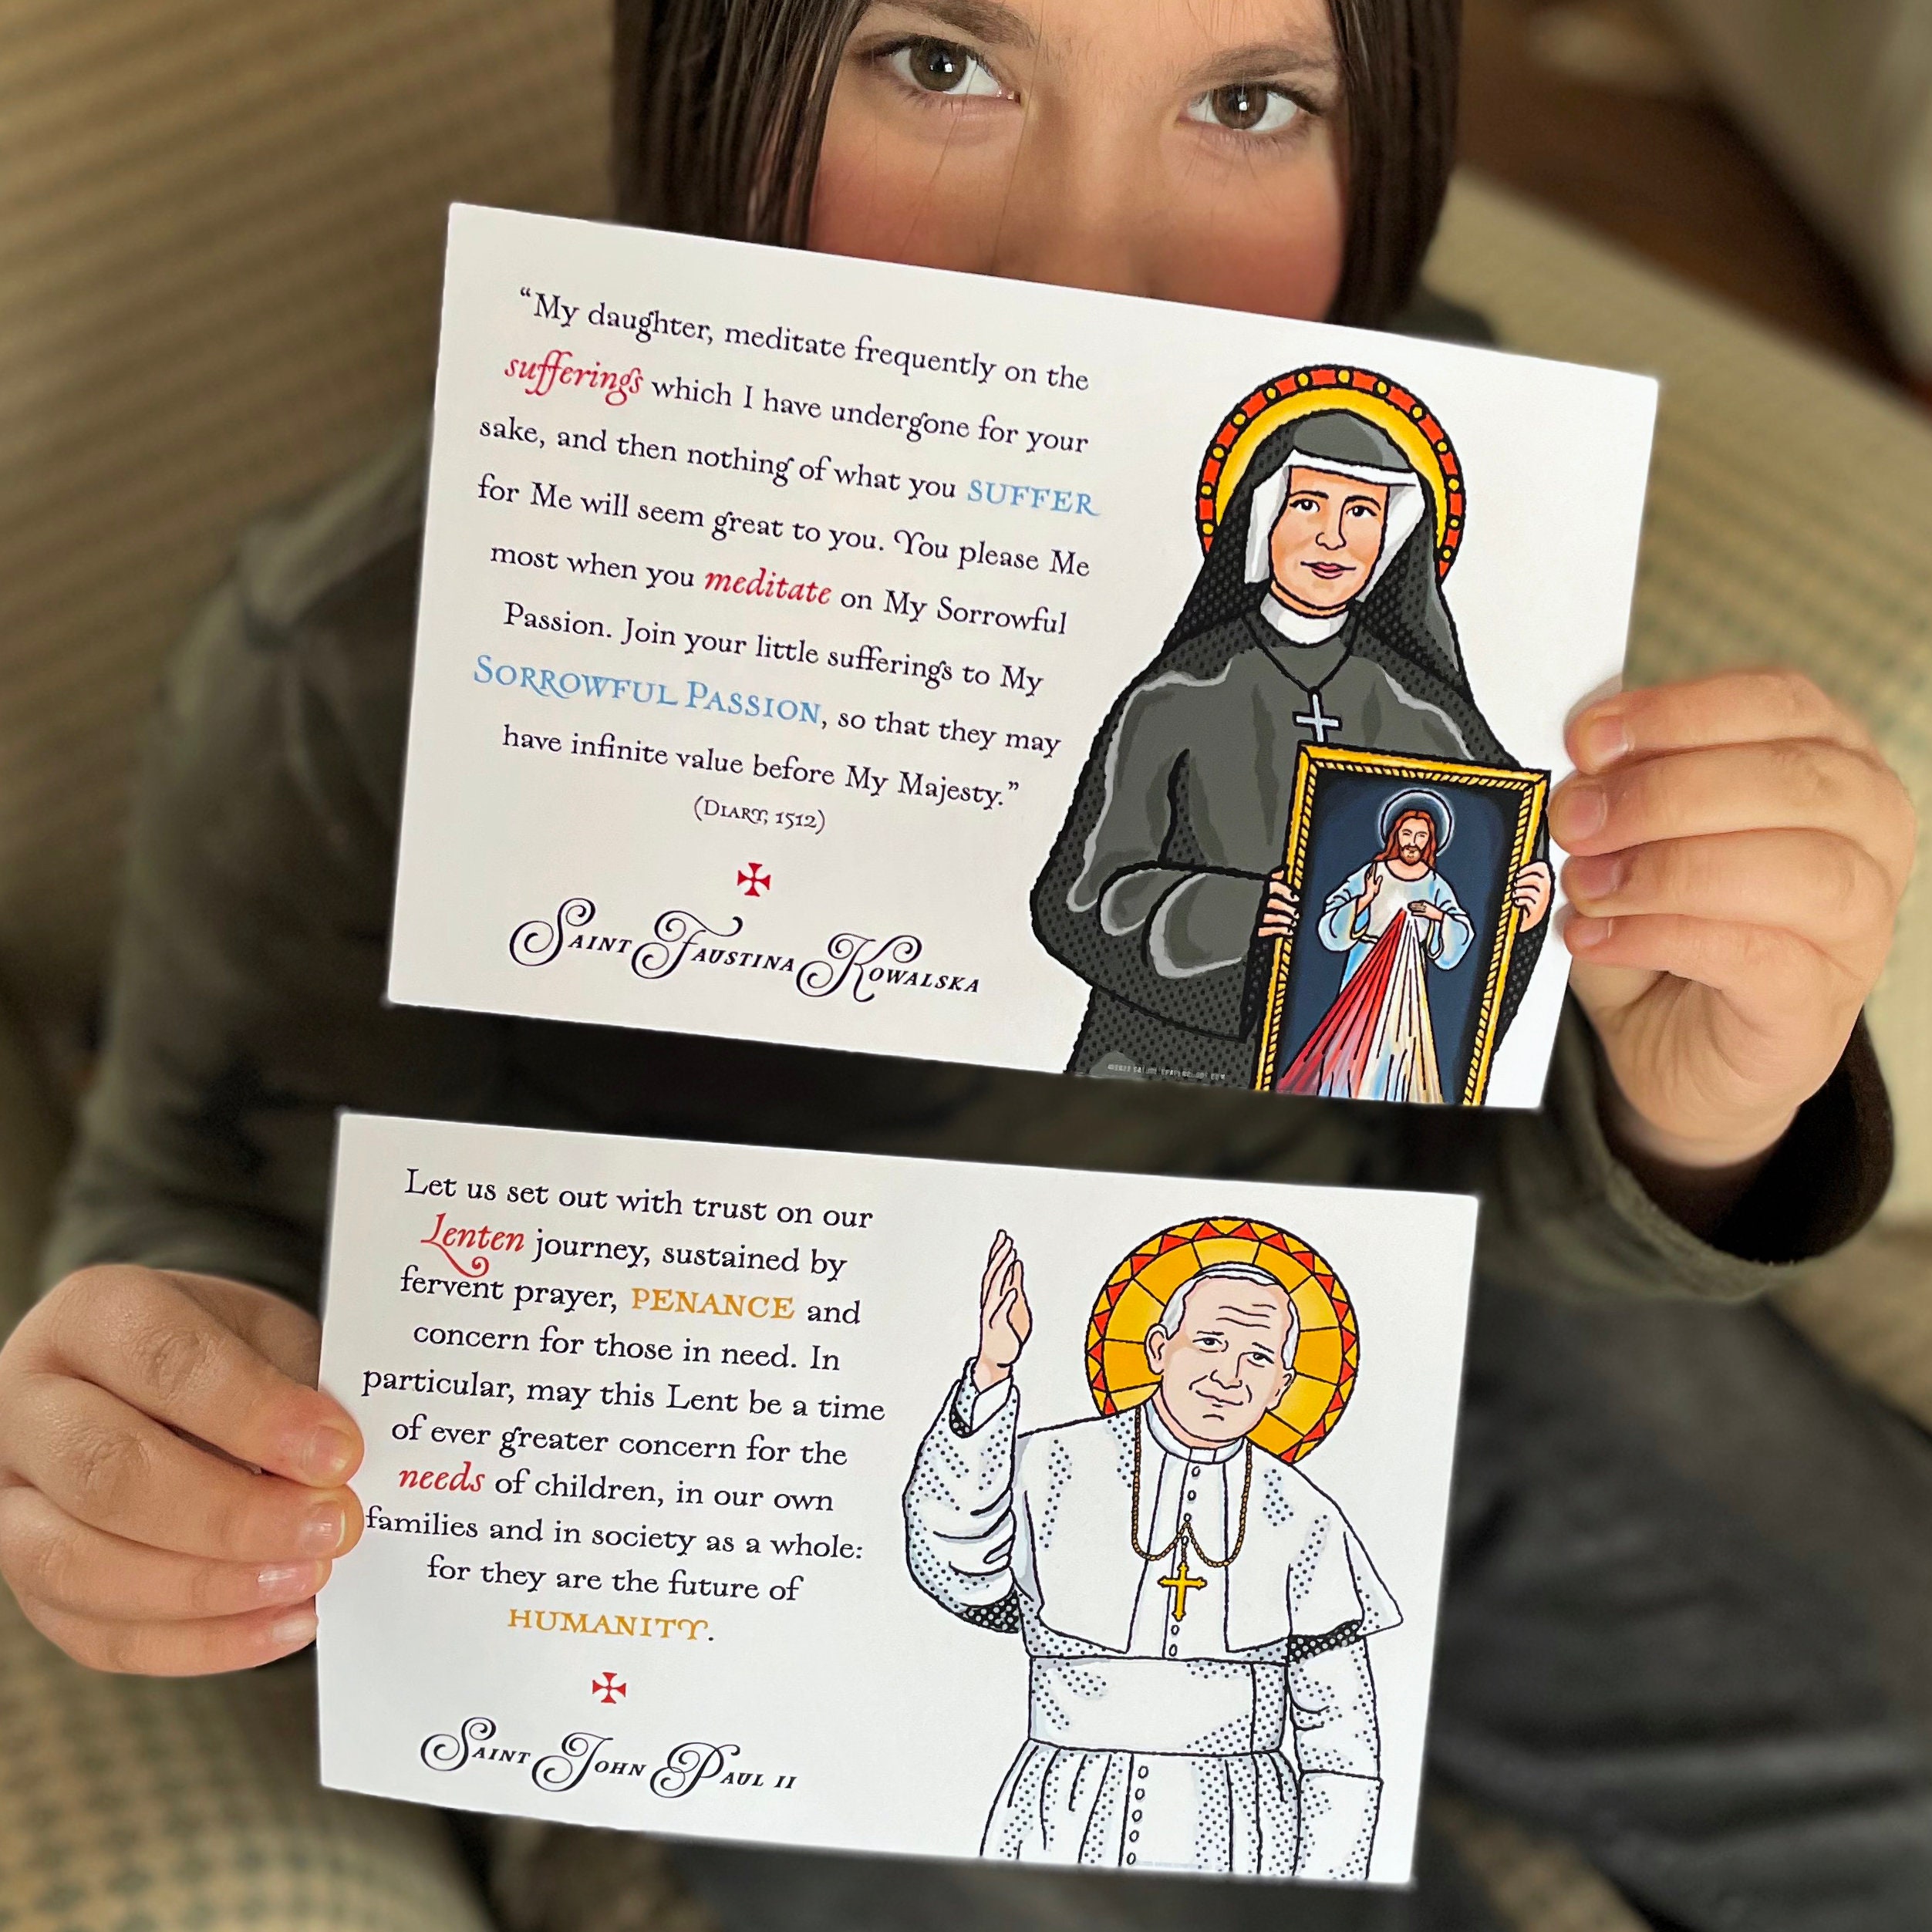 “My daughter, meditate frequently on the
sufferings which I have undergone for your
sake, and then nothing of what you SUFFER
for Me will seem great to you. You please Me
most when you meditate on My Sorrowful
Passion. Join your little sufferings to My
SORROWFUL PASSION, so that they may
have infinite value before My Majesty.”
(DIARY, 1512)
SAINT FAUSTINA KOWALSKA
Let us set out with trust on our
Lenten journey, sustained by
fervent prayer, PENANCE and
concern for those in need. In
particular, may this Lent be a time
of ever greater concern for the
needs of children, in our own
families and in society as a whole:
for they are the future of
HUMANITY.
SAINT JOHN PAUL II